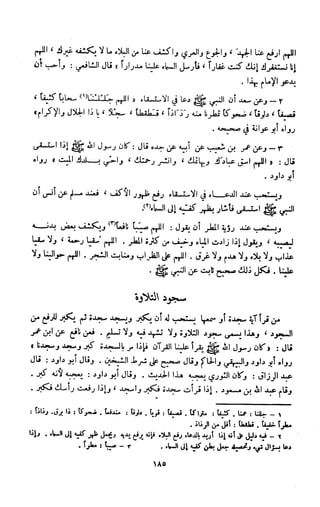 اللهم ارفع عنا الجهد ، والجوع والعري واكشف عنا من البلاء ما لا يكشفه غيرك ، اللهم
إنا نستغفرك إنك كنت غفاراً ، فأرسل السماء علينا مدراراً » قال الشافعي : وأحب أن
يدعو الإمام بهذا .
٢ - وعن سعد أن النبي ﷺ دعا في الاستسقاء « اللهم جللنا (١) سحاباً كثيفاً ،
قصيفاً ، دلوقاً ، ضحوكاً تمطرنا منه رذاذاً ، قطقطاً ، سجلا ، يا ذا الجلال والإكرام »
رواه أبو عوانة في صحيحه .
٣ - وعن عمرو بن شعيب عن أبيه عن جده قال : كان رسول الله ﷺ إذا استسقى
قال : « اللهم اسق عبادك وبهائمك ، وانشر رحمتك ، واحي بلدك الميت » رواه
أبو داود .
ويستحب عند الدعاء في الاستسقاء رفع ظهور الأكف ، فعند مسلم عن أنس أن
النبي ﷺ استسقى فأشار بظهر كفيه إلى السماء (٢) .
ويستحب عند رؤية المطر أن يقول : اللهم صيباً نافعاً (٣) ويكشف بعض بدنه
ليصيبه ، ويقول إذا زادت المياه وخيف من كثرة المطر . اللهم سقيا رحمة ، ولا سقيا
عذاب ولا بلاء ولا هدم ولا غرق . اللهم على الظراب ومنابت الشجر . اللهم حوالينا ولا
علينا . فكل ذلك صحيح ثابت عن النبي ﷺ .
سجود التلاوة
من قرأ آية سجدة أو سمعها يستحب له أن يكبر ويسجد سجدة ثم يكبر للرفع من
السجود ، وهذا يسمى سجود التلاوة ولا تشهد فيه ولا تسليم . فعن نافع عن ابن عمر
قال : « كان رسول الله ﷺ يقرأ علينا القرآن فإذا مر بالسجدة كبر وسجد وسجدنا »
رواه أبو داود والبيهقي والحاكم وقال صحيح على شرط الشيخين . وقال أبو داود : قال
عبد الرزاق : وكان الثوري يعجبه هذا الحديث . وقال أبو داود : يعجبه لأنه كبر .
وقال عبد الله بن مسعود . إذا قرأت سجدة فكبر واسجد ، وإذا رفعت رأسك فكبر .
١ - جللنا : عمنا . كثيفاً : متراكماً . قصيفاً : قوياً . دلوقاً : مندفعاً . ضحوكاً : ذا برق . رذاذاً :
مطراً خفيفاً . قطقطاً : أقل من الرذاذ .
٢ - فيه دليل على أنه إذا أريد بالدعاء رفع البلاء فإنه يرفع يديه ويجعل ظهر كفيه إلى السماء . وإذا
دعا بسؤال شيء وتحصيله جعل بطن كفيه إلى السماء . ٣ - صيباً : مطراً .
١٨٥